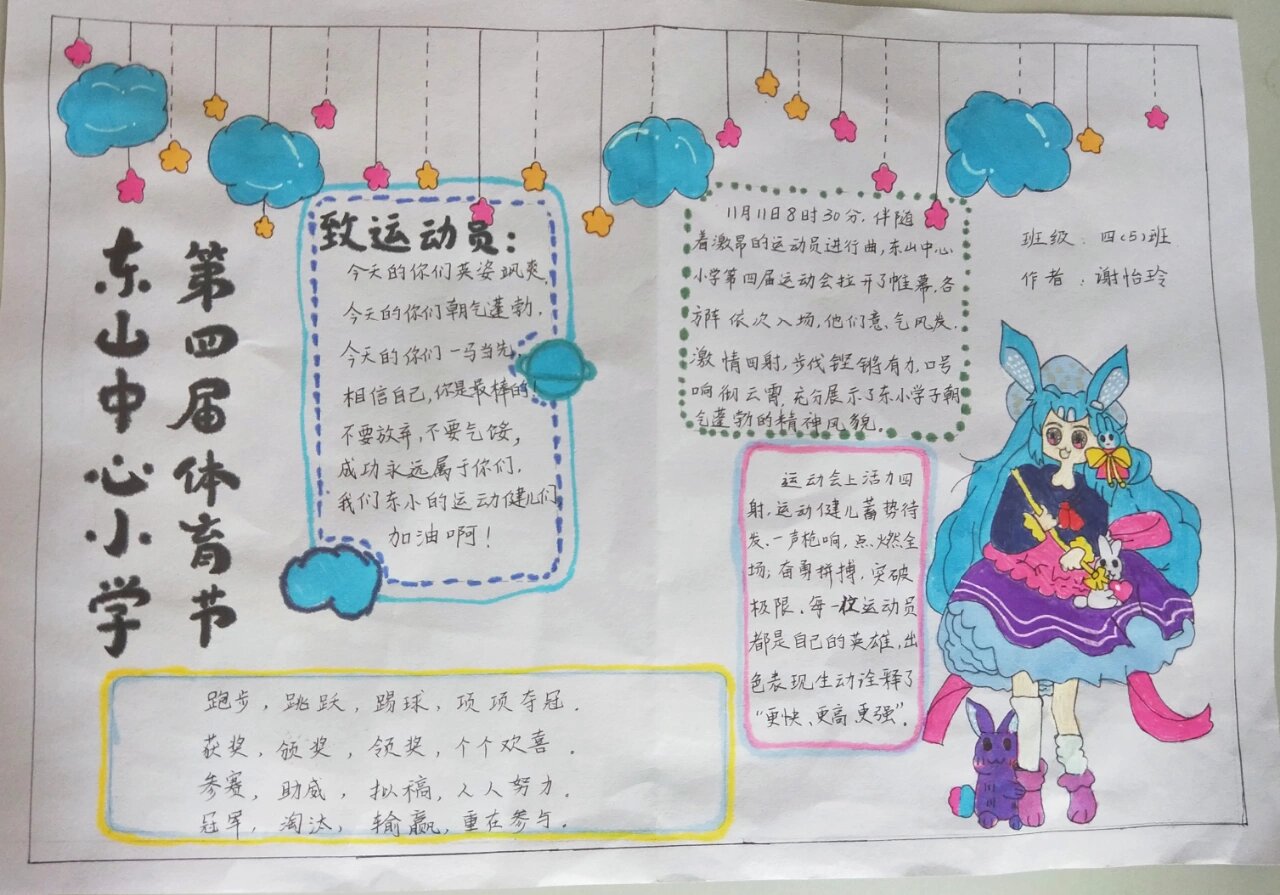 东山中心小学
第四届体育节
致运动员：
今天的你们英姿飒爽，
今天的你们朝气蓬勃．
今天的你们一马当先，
相信自己，你是最棒的！
不要放弃，不要气馁，
成功永远属于你们，
我们东小的运动健儿们
加油啊！
11月11日8时30分，伴随
着激昂的运动员进行曲，东山中心
小学第四届运动会拉开了帷幕，各
方阵依次入场，他们意气风发，
激情四射，步伐铿锵有力，口号
响彻云霄，充分展示了东小学子朝
气蓬勃的精神风貌．
班级：四(5)班
作者：谢怡玲
运动会上活力四
射，运动健儿蓄势待
发、一声枪响，点燃全
场；奋勇拼搏，突破
极限、每一位运动员
都是自己的英雄，出
色表现生动诠释了
“更快、更高、更强”．
跑步，跳跃，踢球，项项夺冠．
获奖，颁奖，领奖，个个欢喜．
参赛，助威，拟稿，人人努力．
冠军，淘汰，输赢，重在参与．